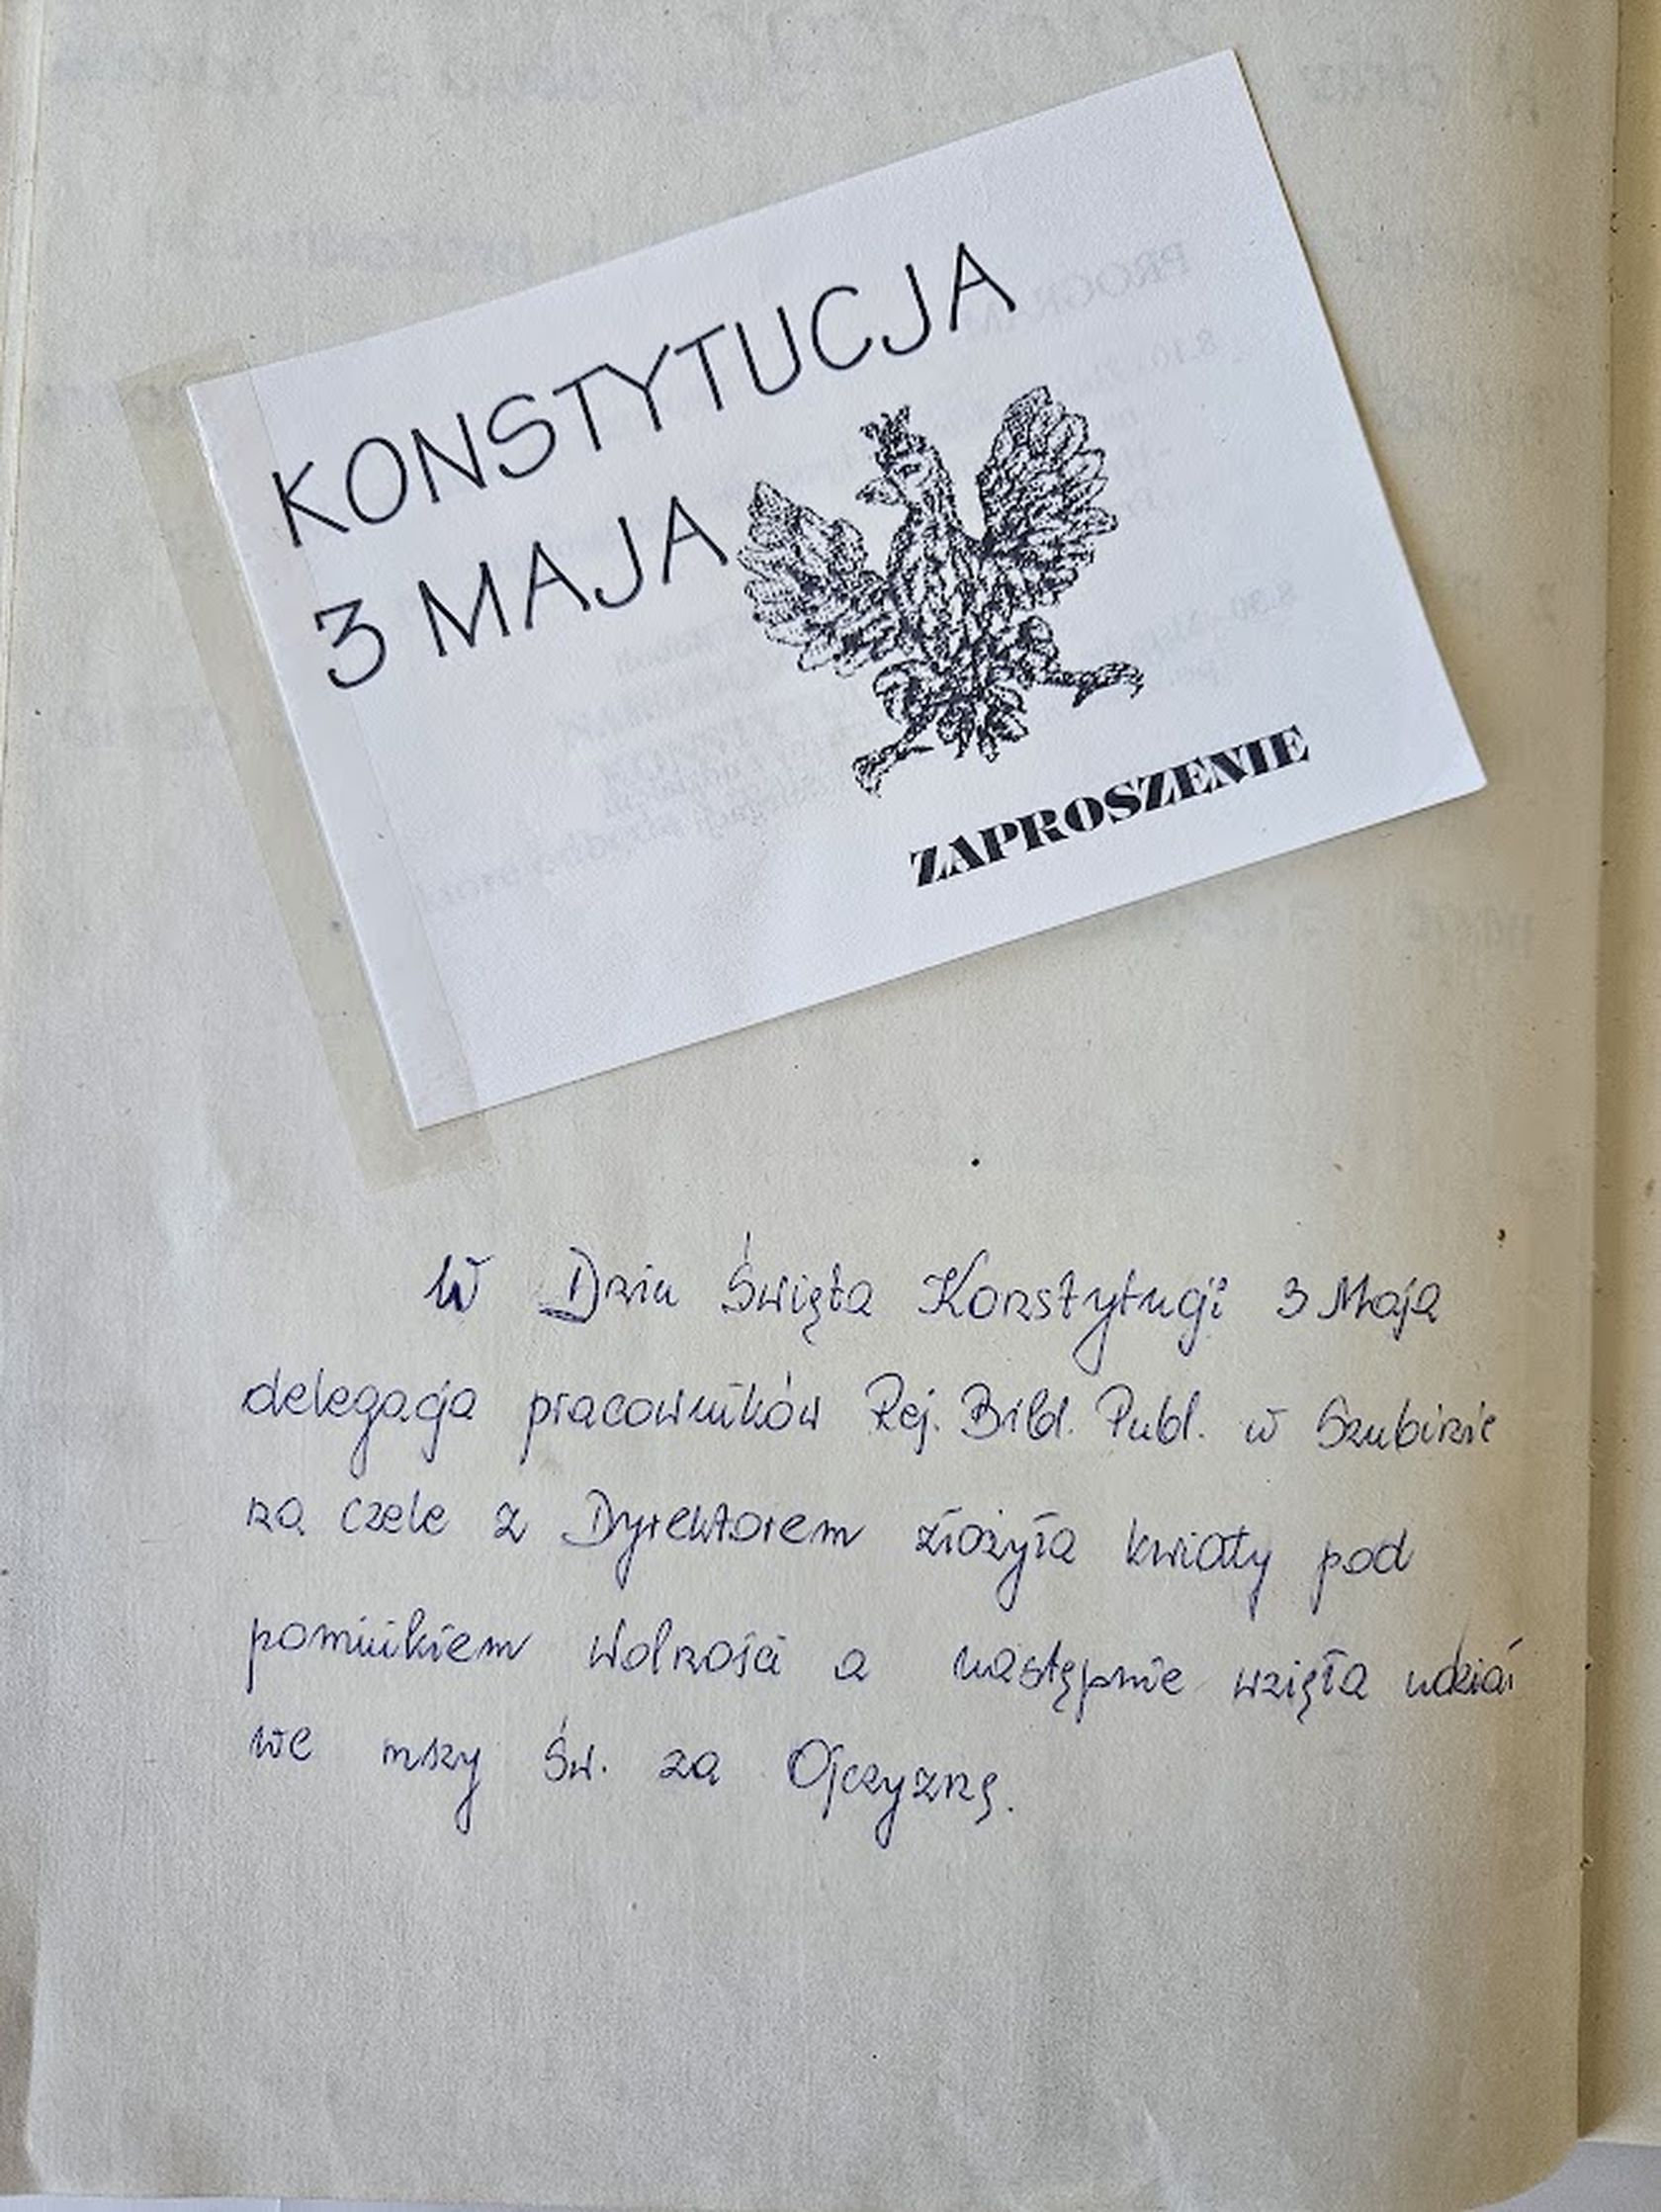 KONSTYTUCJA
3 MAJA
ZAPROSZENIE
W Dniu Święta Konstytucji 3 Maja
delegacja pracowników Rej. Bibl. Publ. w Szubinie
na czele z Dyrektorem złożyła kwiaty pod
pomnikiem Wolności a następnie wzięła udział
we mszy Św. za Ojczyznę.